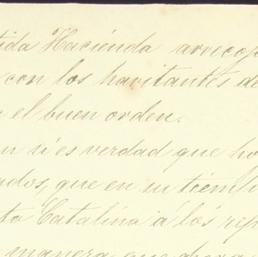 tida Hacienda arrecop
con los havitantes de
el buen orden.
n si es verdad que ho
ados, que en su tiem
ta Catalina á los rep
manera que ahora